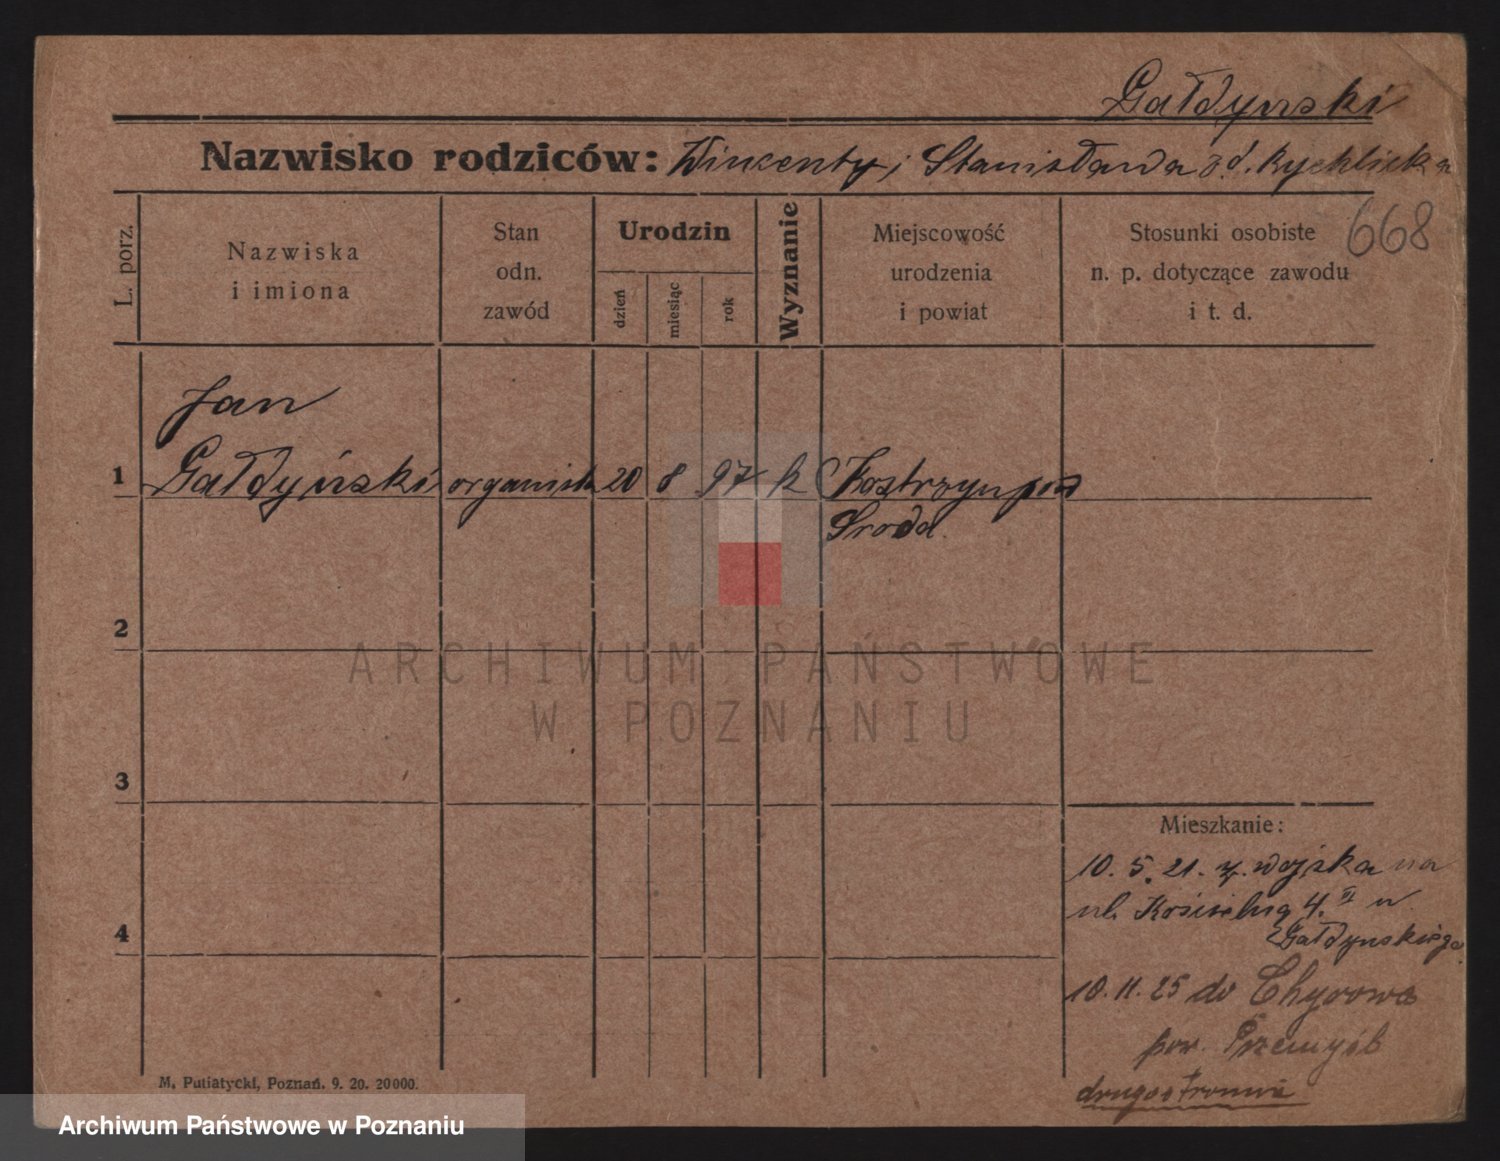 Gałdyński
Nazwisko rodziców: Wincenty i Stanisława z d. Rychlicka
668
L. porz.
Nazwiska
i imiona
Stan
odn.
zawód
Urodzin
dzień
miesiąc
rok
Wyznanie
Miejscowość
urodzenia
i powiat
Stosunki osobiste
n. p. dotyczące zawodu
i t. d.
Jan
1 Gałdyński organista 20 8 97 k Kostrzyn pow
Środa
2
ARCHIWUM PAŃSTWOWE
W POZNANIU
3
Mieszkanie:
10. 5. 21. z wojska na
ul. Kościelną 4. II u
Gałdyńskiego
4
10. 11. 25 do Chyrowa
pow. Przemyśl
drugostronnie
M. Putiatycki, Poznań. 9. 20. 20000.
Archiwum Państwowe w Poznaniu